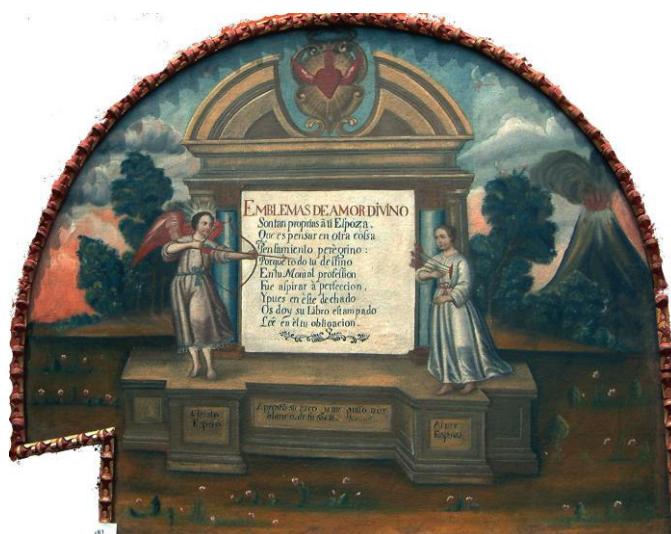 EMBLEMAS DE AMOR DIVINO
Son tan proprias à ti Espoza,
Que es pensar en otra cossa
Pensamiento peregrino:
Porque todo tu destino
En tu Monial profession
Fue aspirar à perfeccion,
Y pues en este dechado
Os doy su Libro estampado
Leé en el tu obligacion.
su arco
Esposo
Alma
Esposa